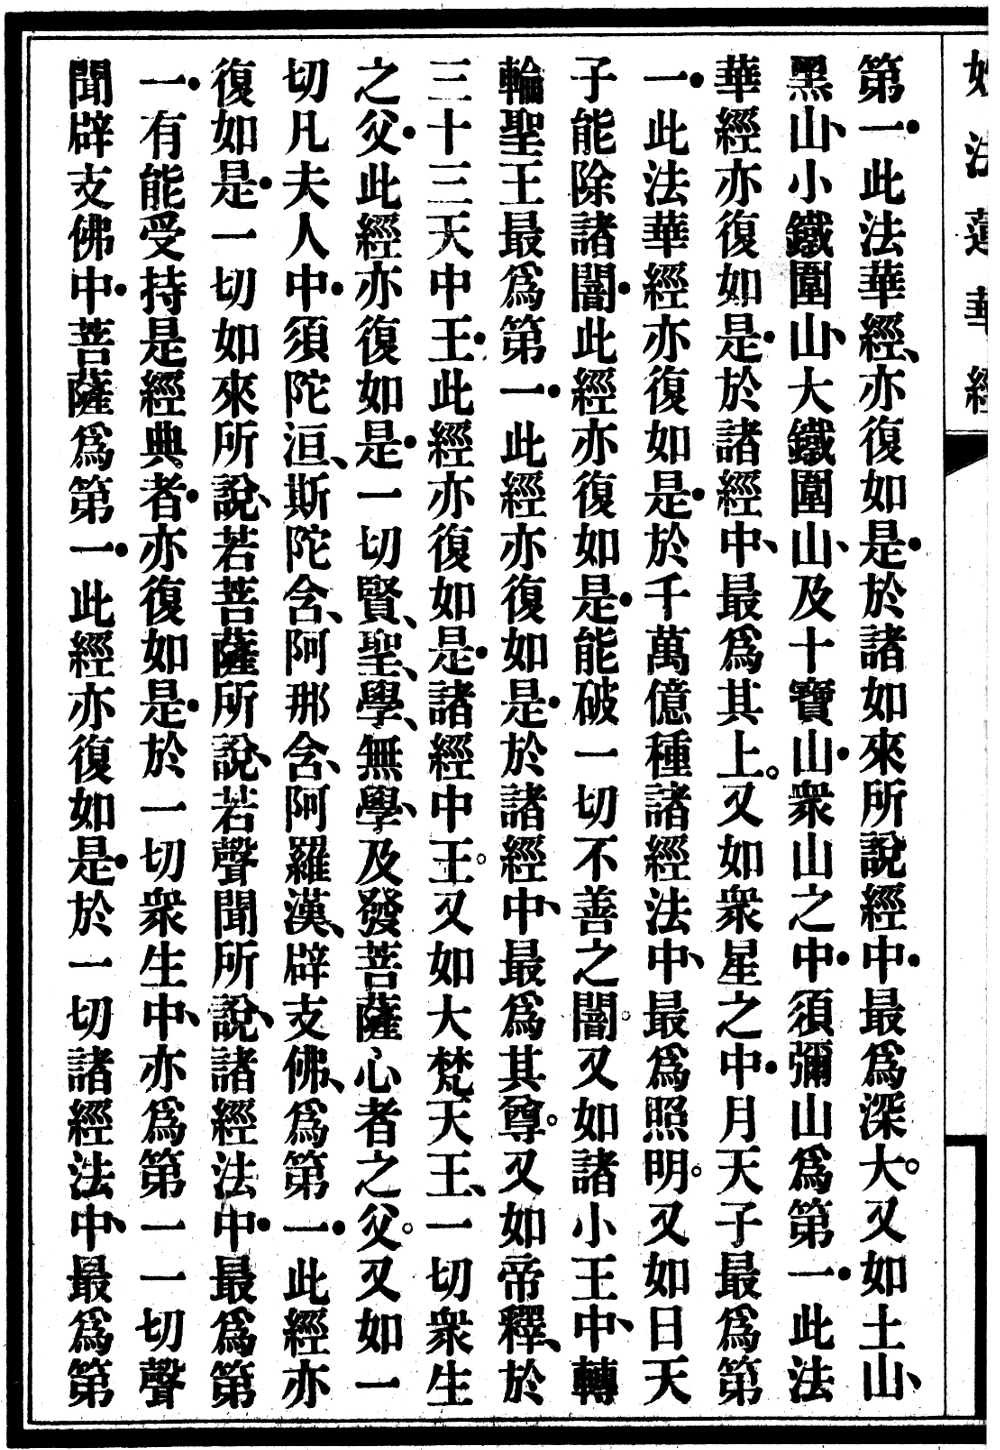 妙法蓮華經
第一•此法華經、亦復如是•於諸如來所說經中•最爲深大。又如土山、
黑山、小鐵圍山、大鐵圍山、及十寶山•衆山之中•須彌山爲第一•此法
華經亦復如是•於諸經中、最爲其上。又如衆星之中•月天子最爲第
一•此法華經亦復如是•於千萬億種諸經法中、最爲照明。又如日天
子能除諸闇•此經亦復如是•能破一切不善之闇。又如諸小王中、轉
輪聖王最爲第一•此經亦復如是•於諸經中、最爲其尊。又如帝釋、於
三十三天中王•此經亦復如是•諸經中王。又如大梵天王、一切衆生
之父•此經亦復如是•一切賢、聖、學、無學、及發菩薩心者之父。又如一
切凡夫人中•須陀洹、斯陀含、阿那含、阿羅漢、辟支佛、爲第一•此經亦
復如是•一切如來所說、若菩薩所說、若聲聞所說、諸經法中•最爲第
一•有能受持是經典者•亦復如是•於一切衆生中、亦爲第一一切聲
聞辟支佛中•菩薩爲第一•此經亦復如是•於一切諸經法中、最爲第